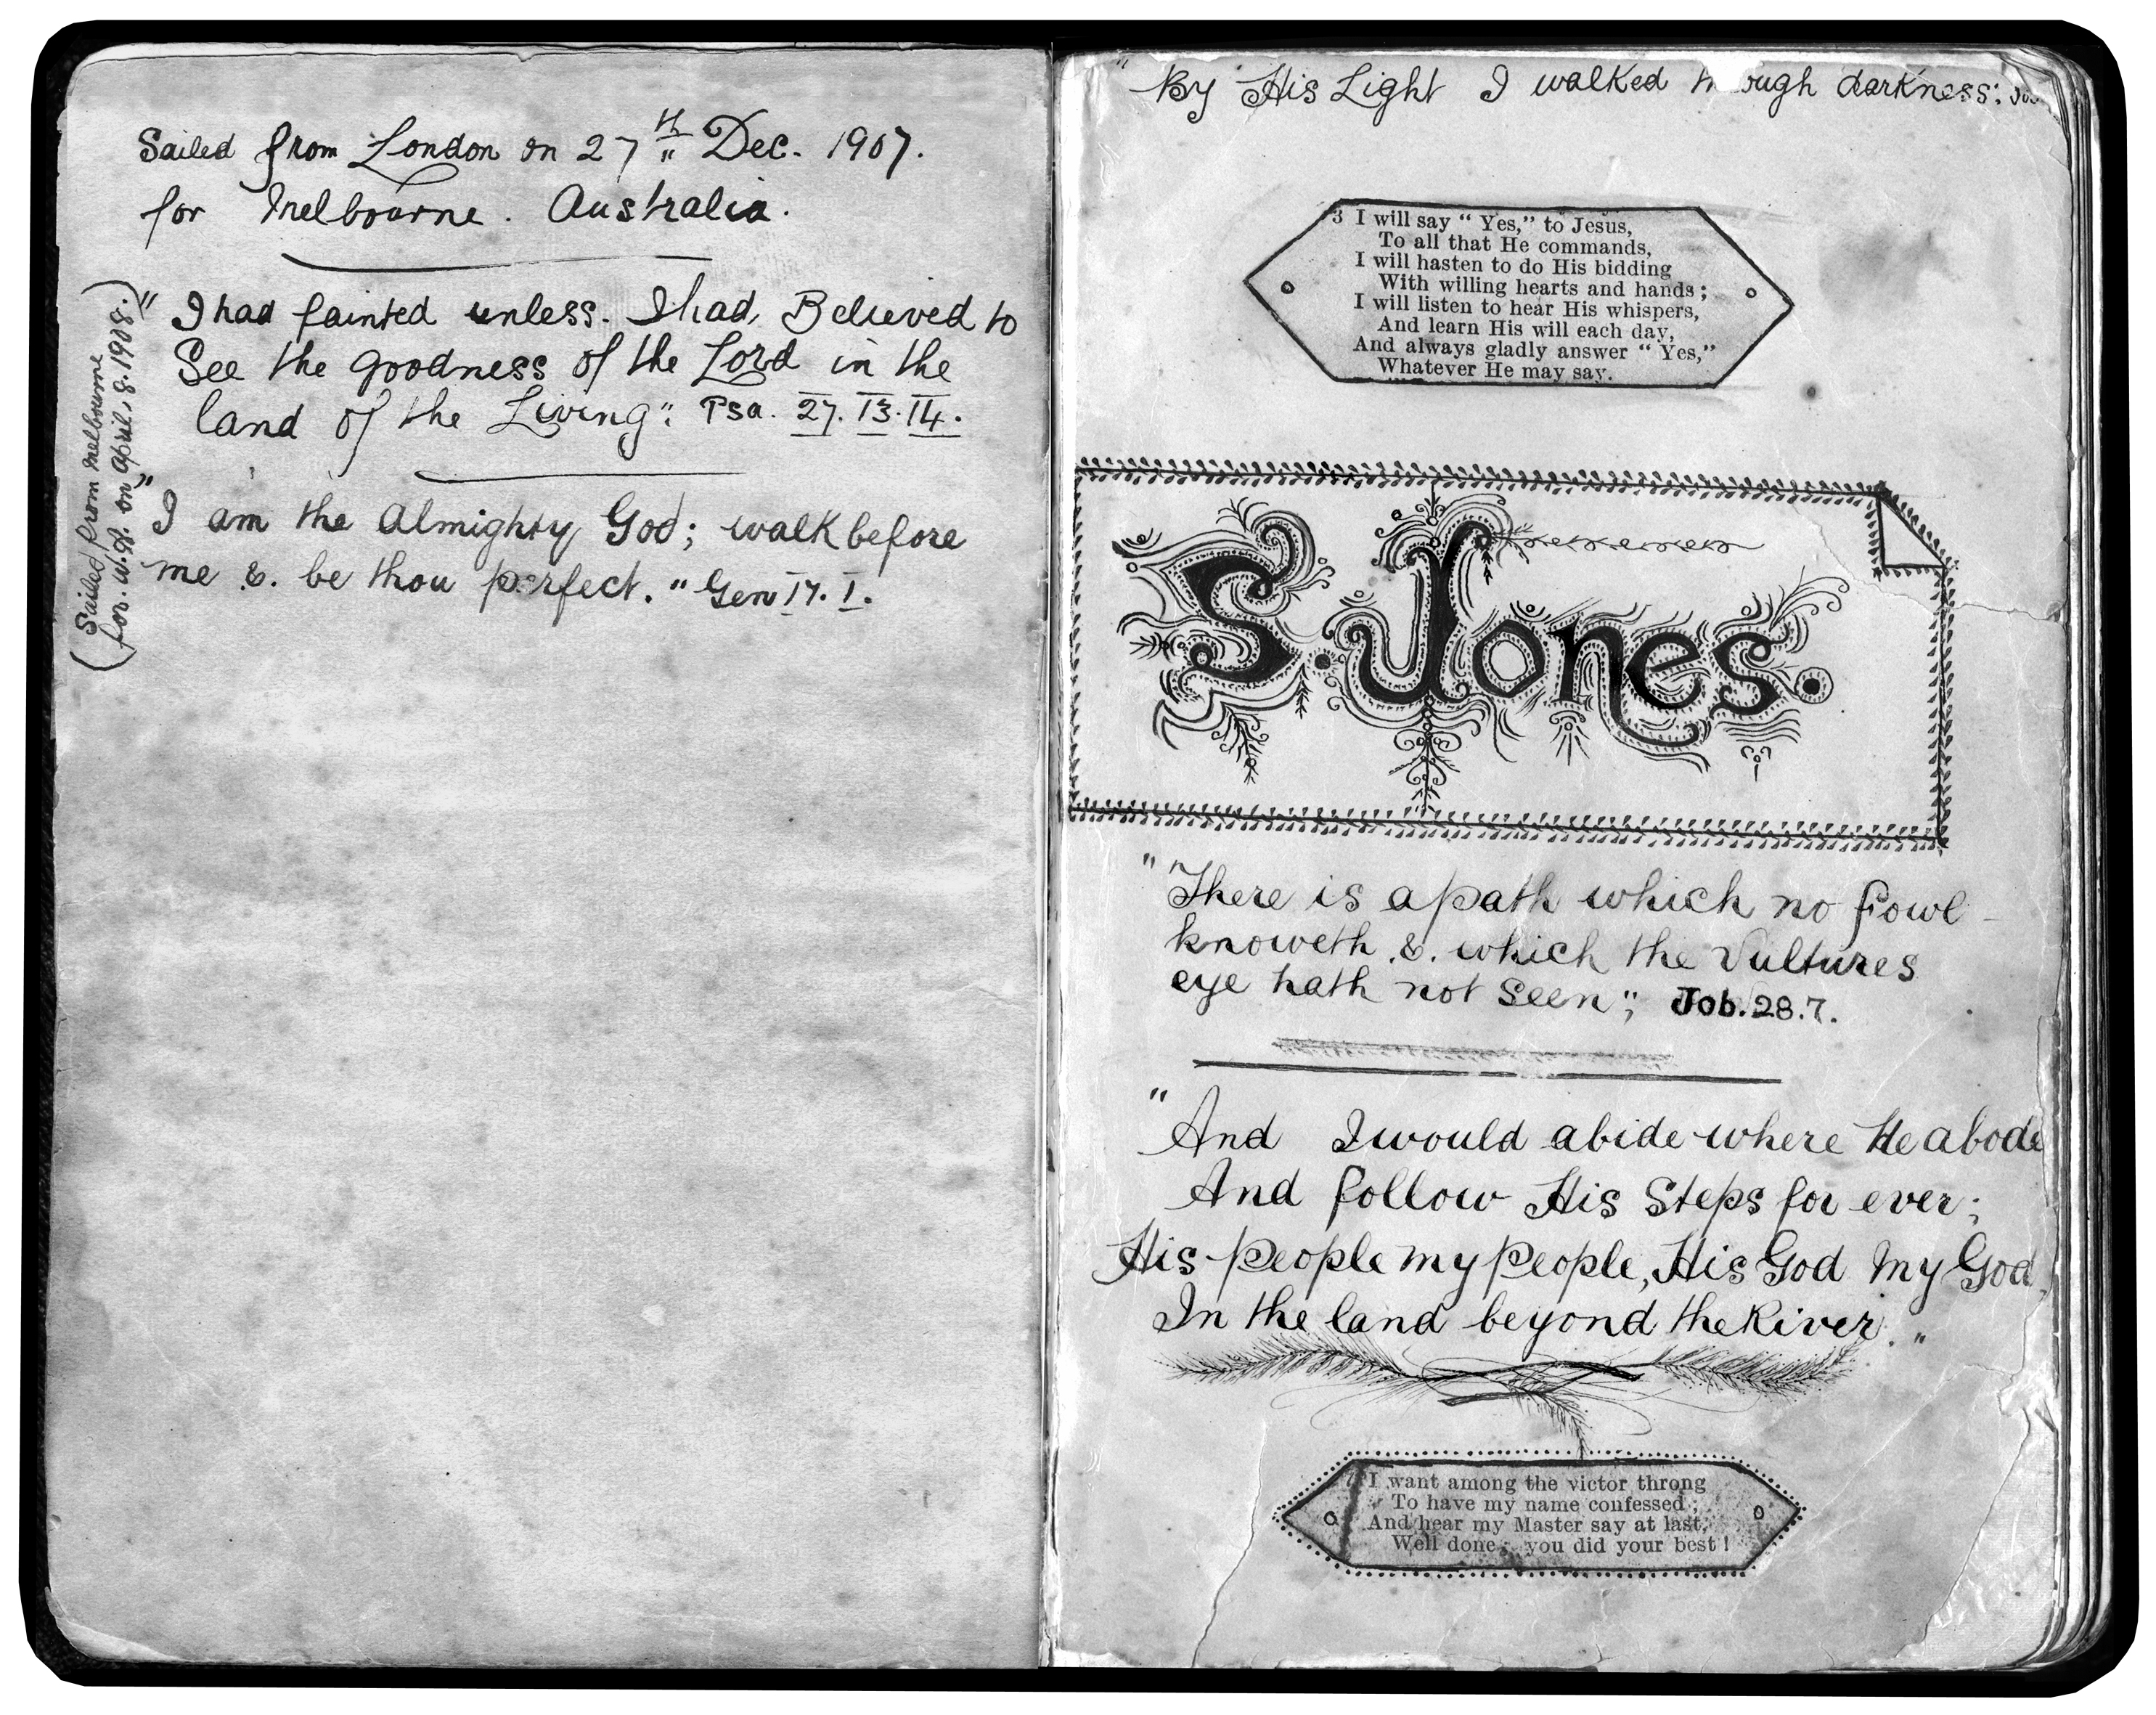 Sailed from London on 27th Dec. 1907.
for Melbourne. Australia.
"I had fainted unless. I had, Believed to
See the goodness of the Lord in the
land of the Living": Psa. 27. 13. 14.
"I am the Almighty God; walk before
me &. be thou perfect." Gen 17. 1.
(Sailed from Melbourne
for. W.A. on April, 8. 1908.)
"By His Light I walked through darkness:
3 I will say "Yes," to Jesus,
To all that He commands,
I will hasten to do His bidding
With willing hearts and hands;
I will listen to hear His whispers,
And learn His will each day,
And always gladly answer "Yes,"
Whatever He may say.
S. Jones.
"There is a path which no fowl
knoweth .&. which the Vultures
eye hath not Seen"; Job. 28.7.
"And I would abide where He abode
And follow His Steps for ever;
His people my people, His God My God,
In the land beyond the River."
I want among the victor throng
To have my name confessed;
And hear my Master say at last,
Well done; you did your best!